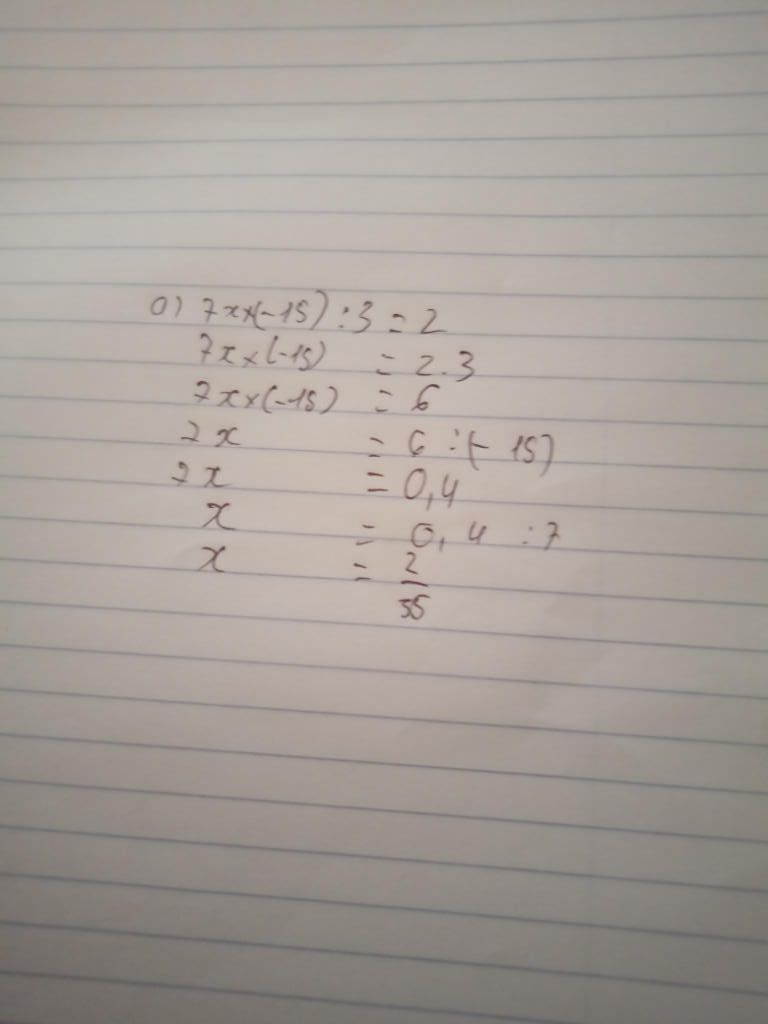 a) 7x×(-15) : 3 = 2
7x×(-15) = 2.3
7x×(-15) = 6
7x = 6 : (-15)
7x = 0,4
x = 0,4 : 7
x = 2/35